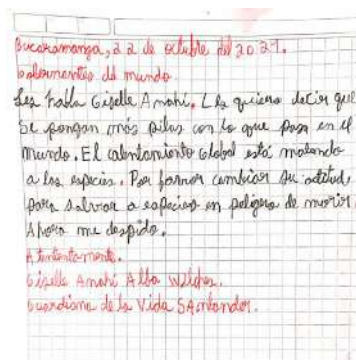 Bucaramanga, 22 de octubre del 2021.
Gobernantes del mundo
Les habla Giselle Anahi. Les quiero decir que
se pongan más pilas con lo que pasa en el
mundo. El calentamiento Global está matando
a las especies. Por favor cambien su actitud,
para salvar a especies en peligro de morir.
Ahora me despido.
Atentamente.
Giselle Anahi Alba Wilches.
Guardiana de la Vida SAntander.